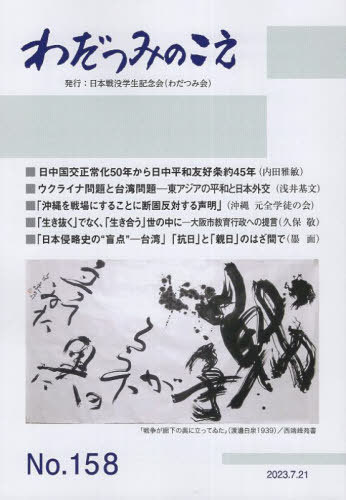 わだつみのこえ
発行：日本戦没学生記念会（わだつみ会）
■日中国交正常化50年から日中平和友好条約45年（内田雅敏）
■ウクライナ問題と台湾問題―東アジアの平和と日本外交（浅井基文）
■「沖縄を戦場にすることに断固反対する声明」（沖縄 元全学徒の会）
■「生き抜く」でなく、「生き合う」世の中に―大阪市教育行政への提言（久保 敬）
■「日本侵略史の“盲点”―台湾」「抗日」と「親日」のはざ間で（墨 面）
戦争が
廊下の
奥に
立って
ゐた
「戦争が廊下の奥に立ってゐた」（渡邊白泉1939）／西嶋峰苑書
No.158
2023.7.21